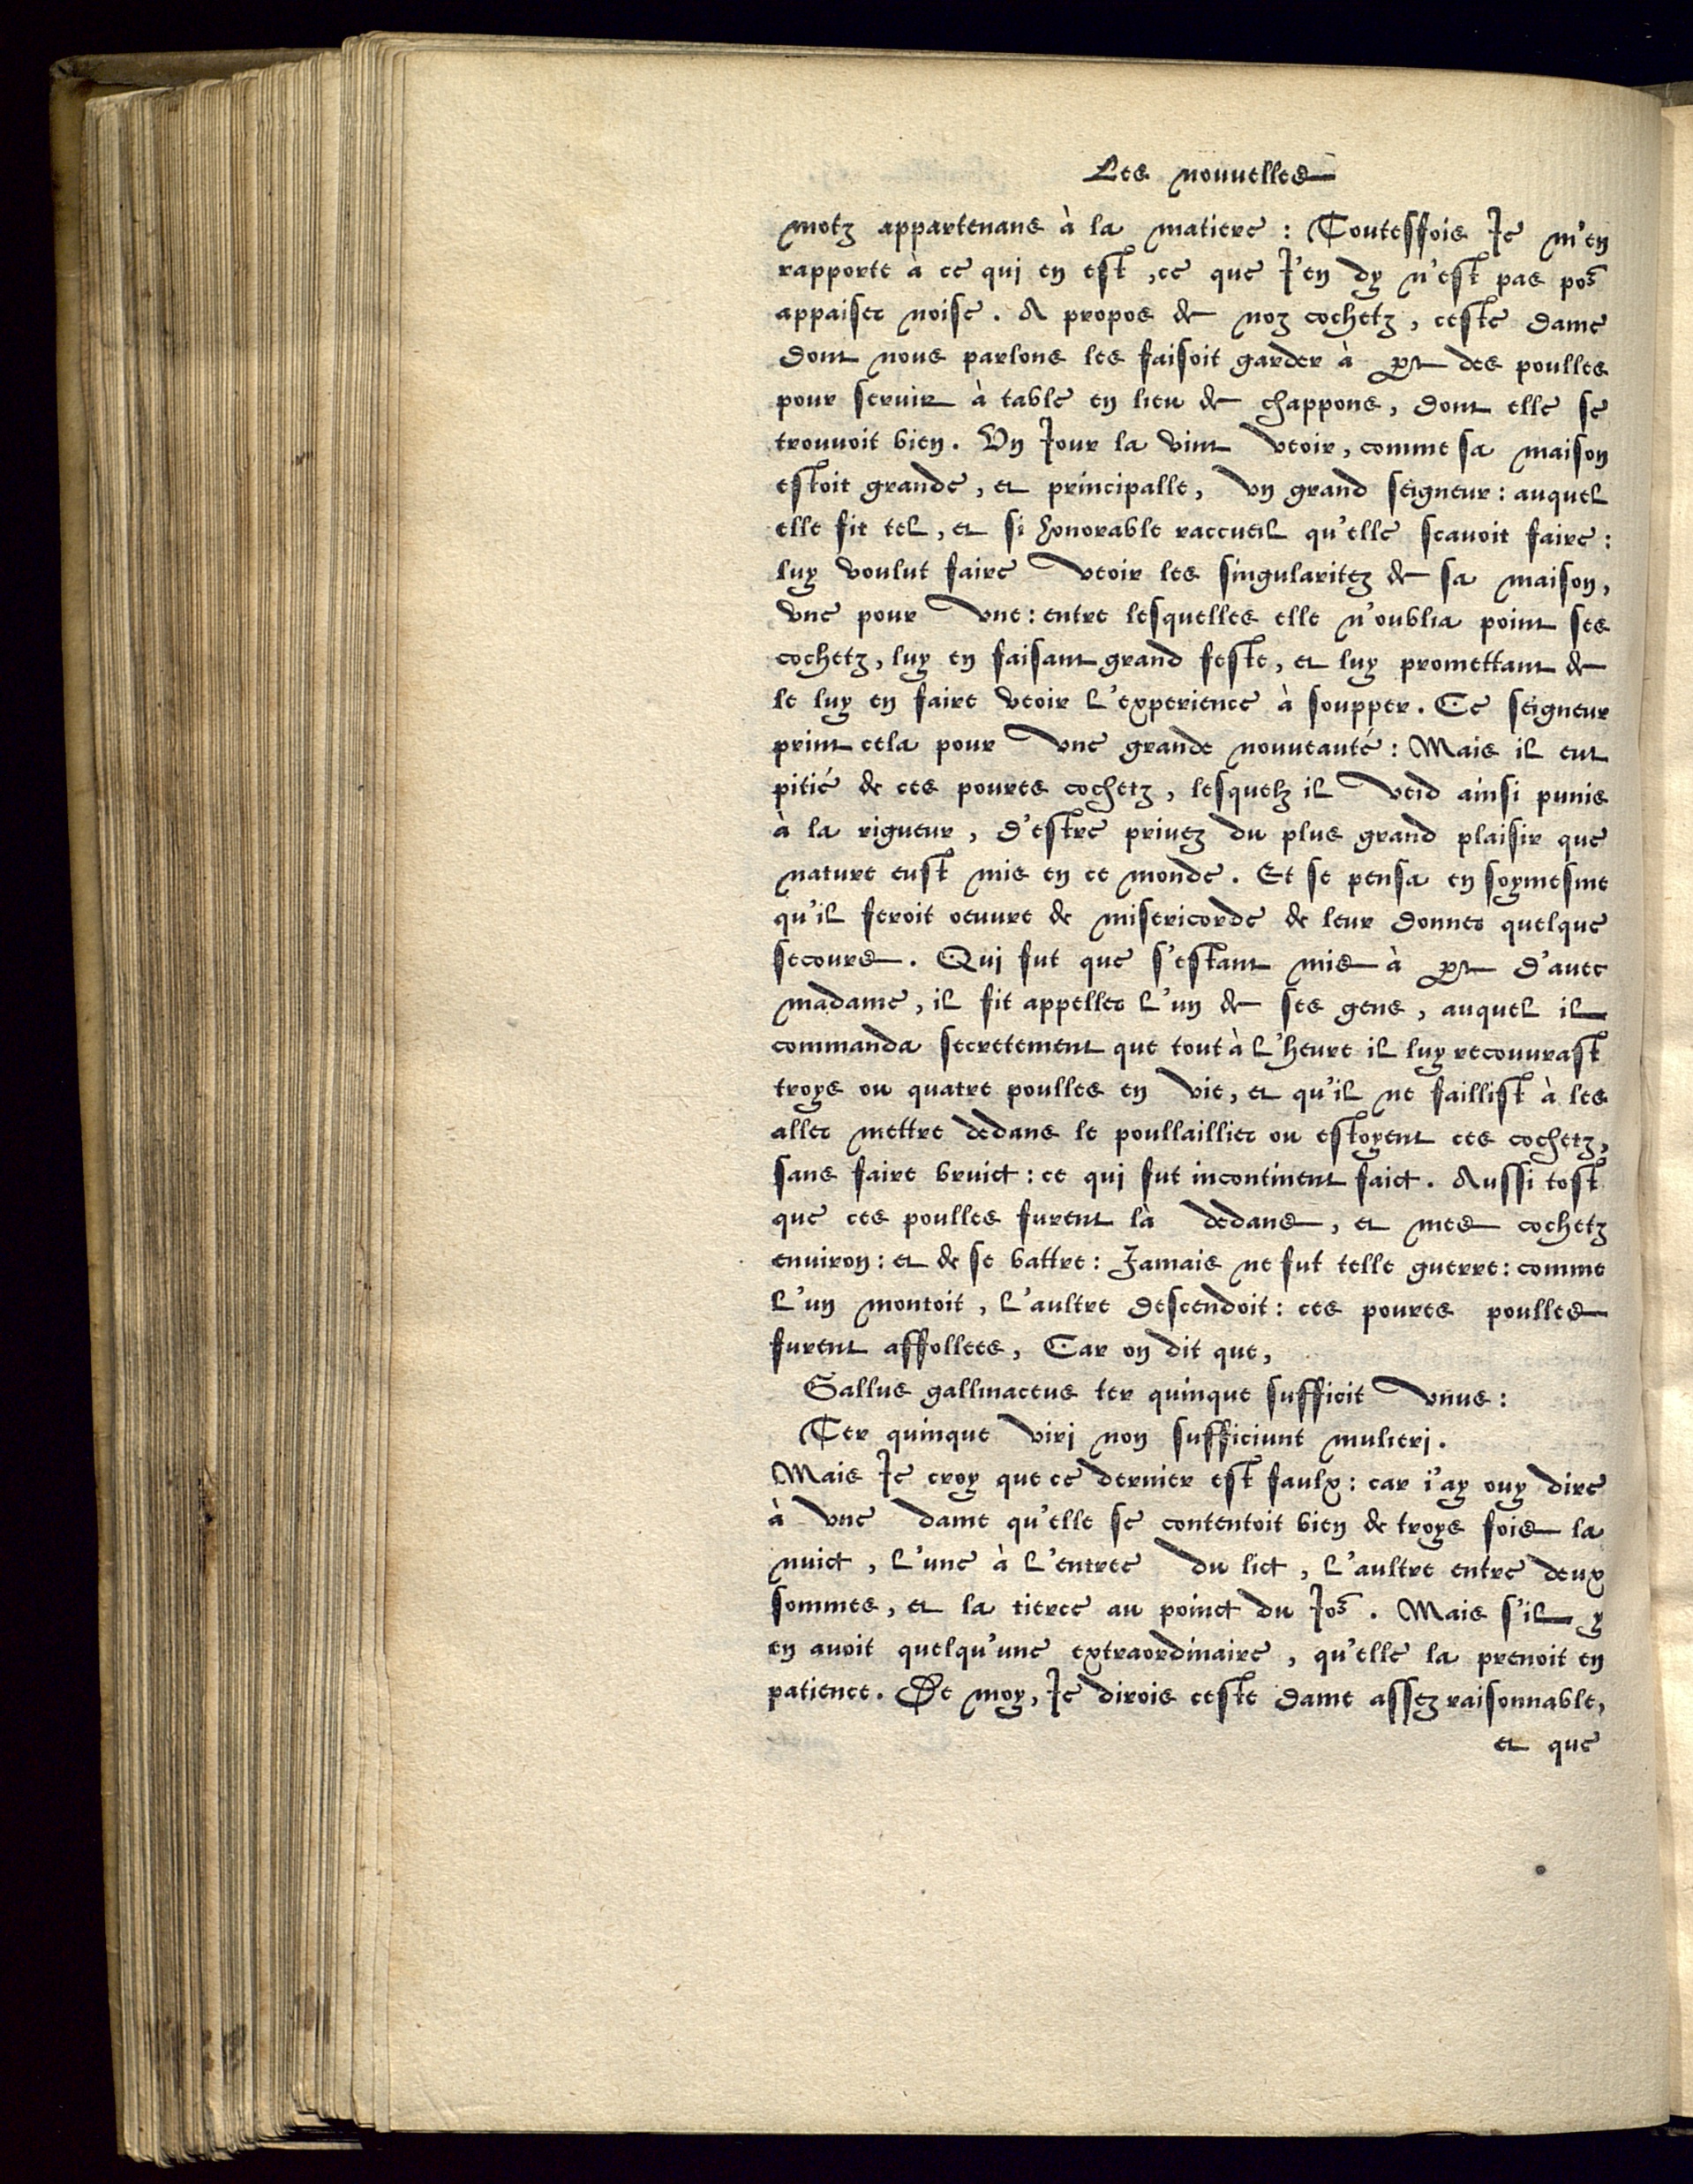 Les nouuelles
motz appartenans à la matiere : Toutesfois Je m'en
rapporte à ce qui en est , ce que J'en dy n'est pas pos
appaiser noise . A propos de noz cochetz , ceste dame
dont nous parlons les faisoit garder à part des poulles
pour seruir à table en lieu de chappons , dont elle se
trouuoit bien . Vn Jour la vint veoir , comme sa maison
estoit grande , et principalle , vn grand seigneur : auquel
elle fit tel , et si honorable raccueil qu'elle scauoit faire :
luy voulut faire veoir les singularitez de sa maison ,
vne pour vne : entre lesquelles elle n'oublia point ses
cochetz , luy en faisant grand feste , et luy promettant de
le luy en faire veoir l'experience à soupper . Ce seigneur
print cela pour vne grande nouueauté : Mais il eut
pitié de ces poures cochetz , lesquelz il veid ainsi punis
à la rigueur , d'estre priuez du plus grand plaisir que
nature eust mis en ce monde . Et se pensa en soymesme
qu'il feroit oeuure de misericorde de leur donner quelque
secours . Qui fut que s'estant mis à part d'auec
madame , il fit appeller l'un de ses gens , auquel il
commanda secretement que tout à l'heure il luy recouurast
troys ou quatre poulles en vie , et qu'il ne faillist à les
aller mettre dedans le poullaillier ou estoyent ces cochetz ,
sans faire bruict : ce qui fut incontinent faict . Aussi tost
que ces poulles furent là dedans , et mes cochetz
enuiron : et de se battre : Jamais ne fut telle guerre : comme
l'un montoit , l'aultre descendoit : ces poures poulles
furent affollees , Car on dit que ,
Gallus gallinaceus ter quinque sufficit vnus :
Ter quinque viri non sufficiunt mulieri .
Mais Je croy que ce dernier est faulx : car i'ay ouy dire
à vne dame qu'elle se contentoit bien de troys fois la
nuict , l'une à l'entree du lict , l'aultre entre deux
sommes , et la tierce au poinct du Jos . Mais s'il y
en auoit quelqu'une extraordinaire , qu'elle la prenoit en
patience . De moy , Je dirois ceste dame assez raisonnable ,
et que